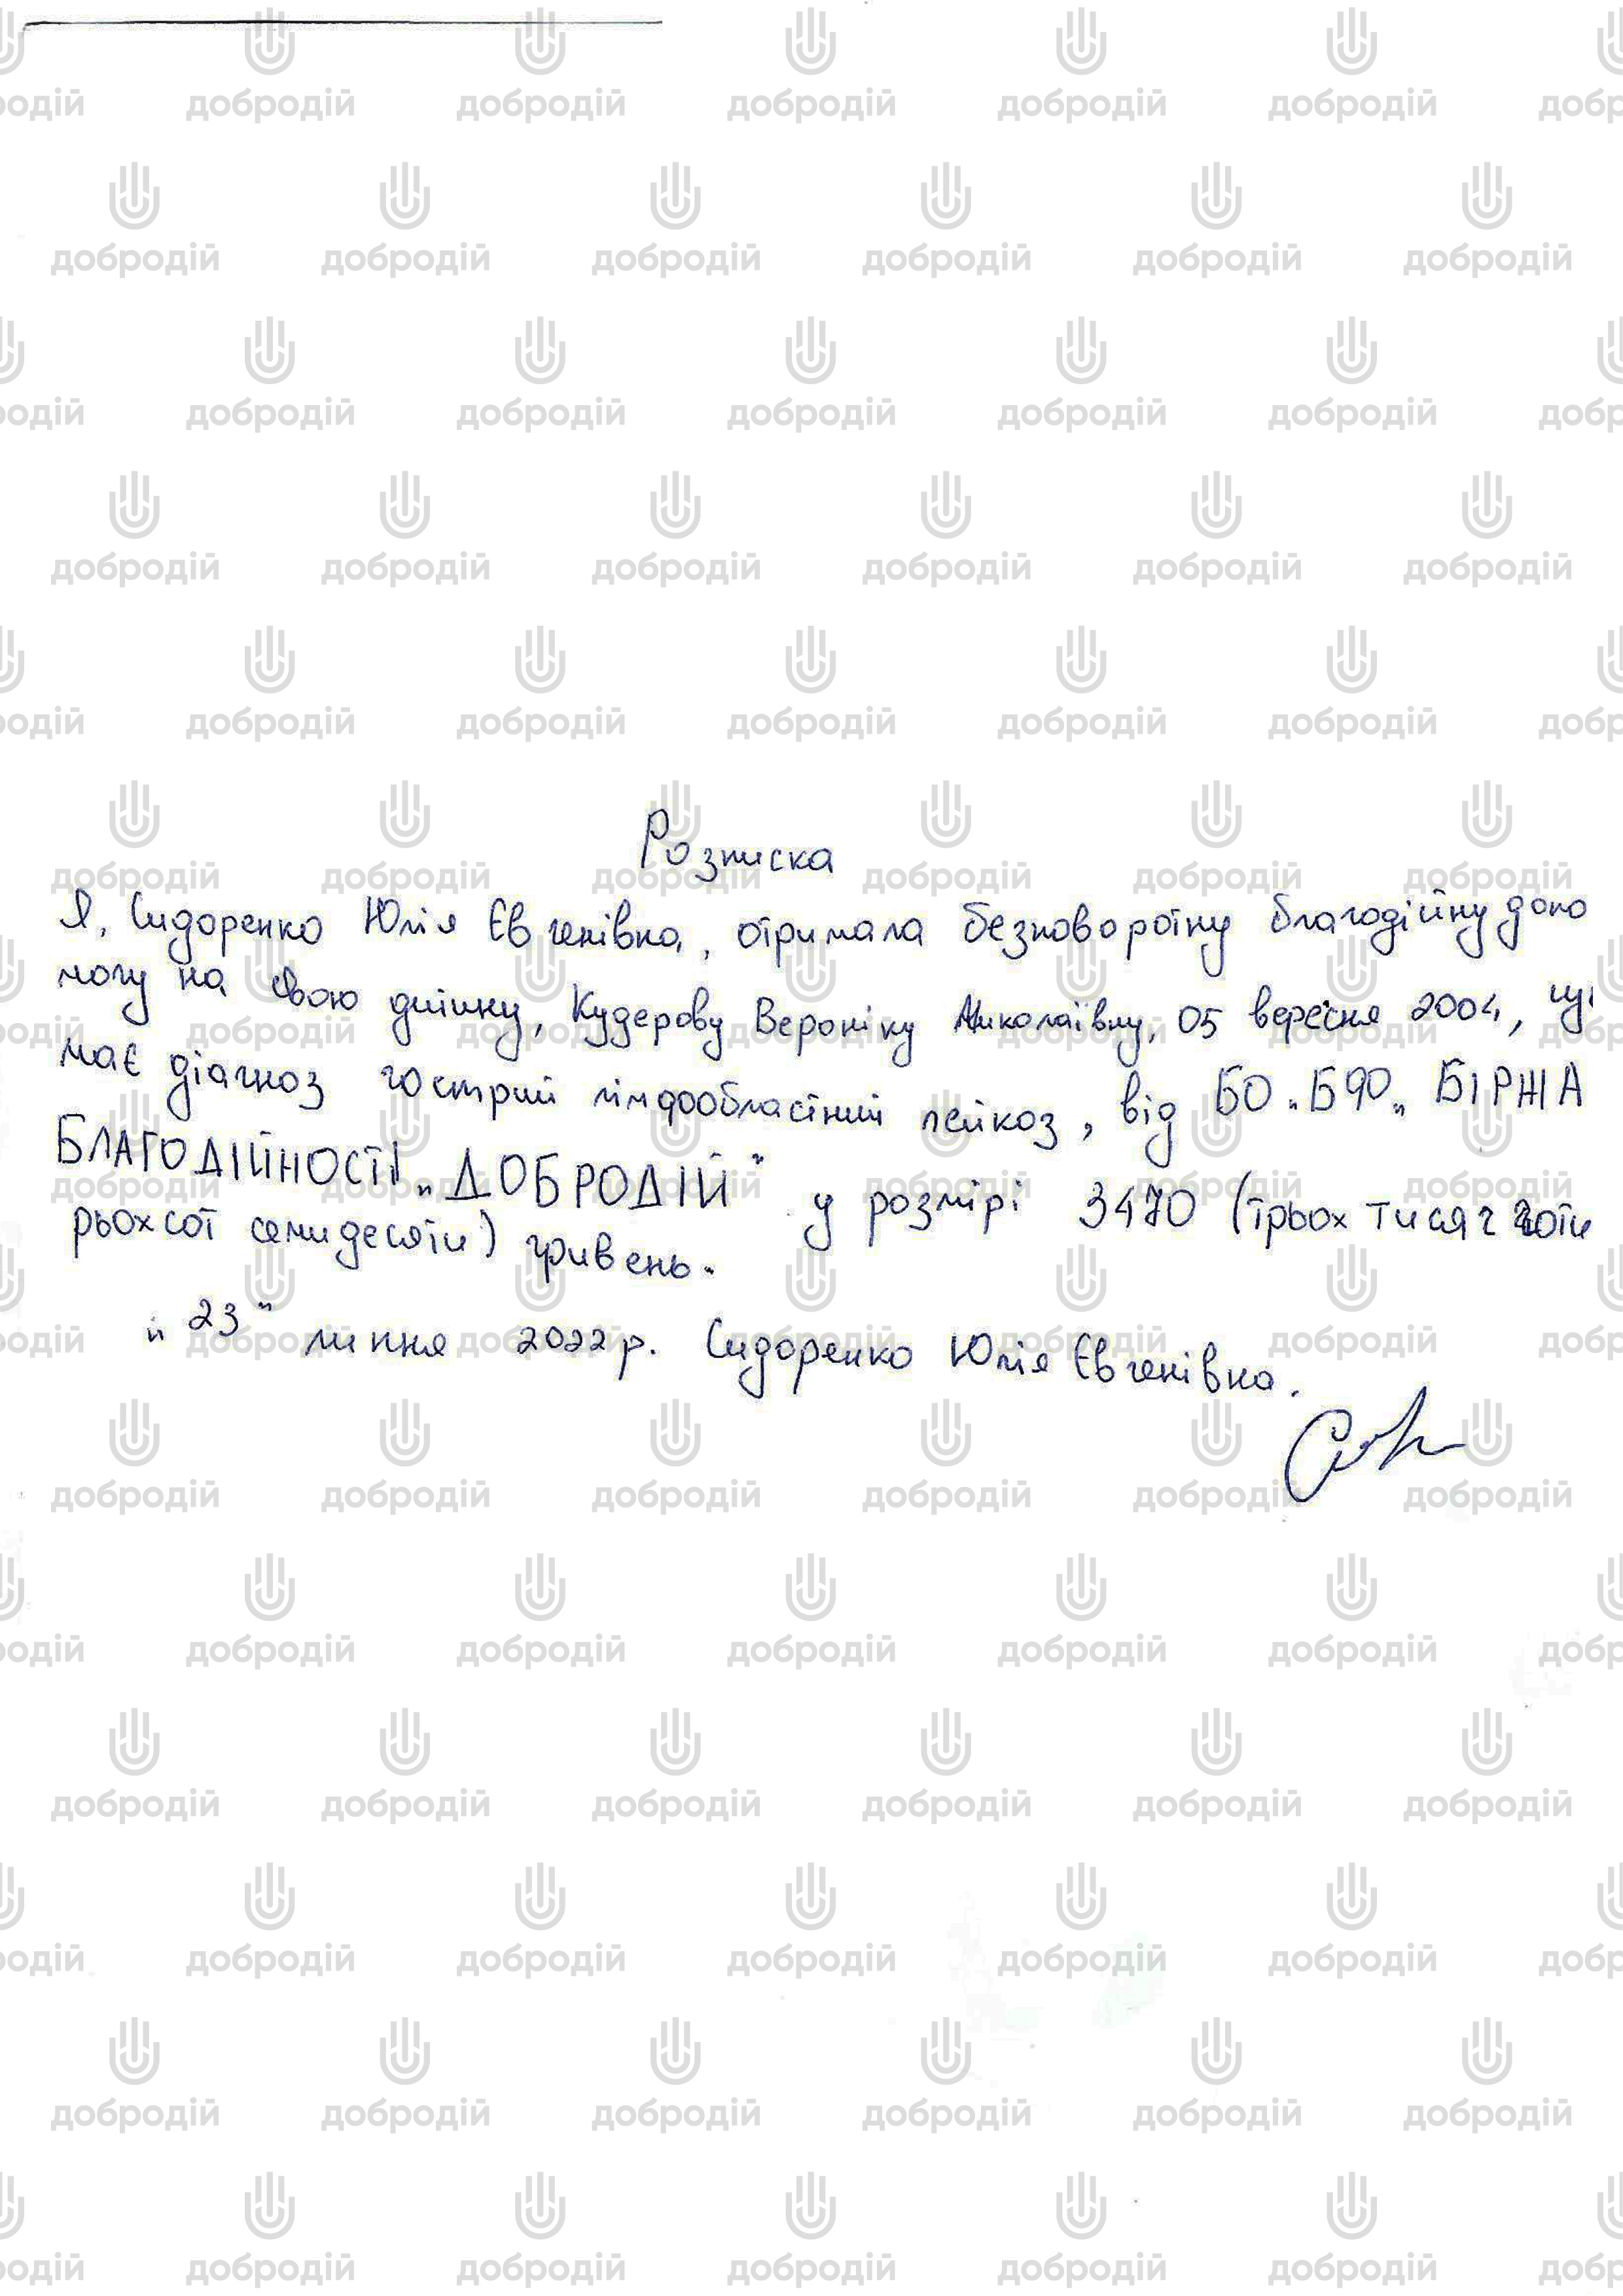 Розписка
Я, Сидоренко Юлія Євгенівна, отримала безповоротну благодійну допо
могу на свою дитину, Кудерову Вероніку Миколаївну, 05 вересня 2004,
має діагноз гострий лімфобластний лейкоз, від БО „БФО„ БІРЖА
БЛАГОДІЙНОСТІ „ДОБРОДІЙ" у розмірі 3470 (трьох тисяч чоти
рьохсот семидесяти) гривень.
„23" липня 2022 р. Сидоренко Юлія Євгенівна.
добродій